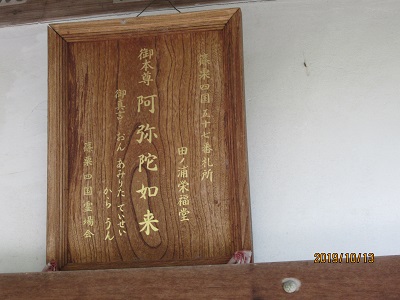 篠栗四国五十七番札所
田ノ浦栄福堂
御本尊 阿弥陀如来
御真言 おん あみりた ていせい
から うん
篠栗四国霊場会
2019/10/13